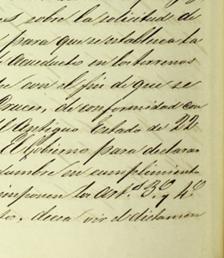 sobre la solicitud de
para que se establezca la
Acueducto en los terrenos
con el fin de que se
de conformidad con
Antiguo Estado de 22
El Gobierno para declarar
en cumplimiento
imponen los arts. 3º y 4º
desea oir el dictamen